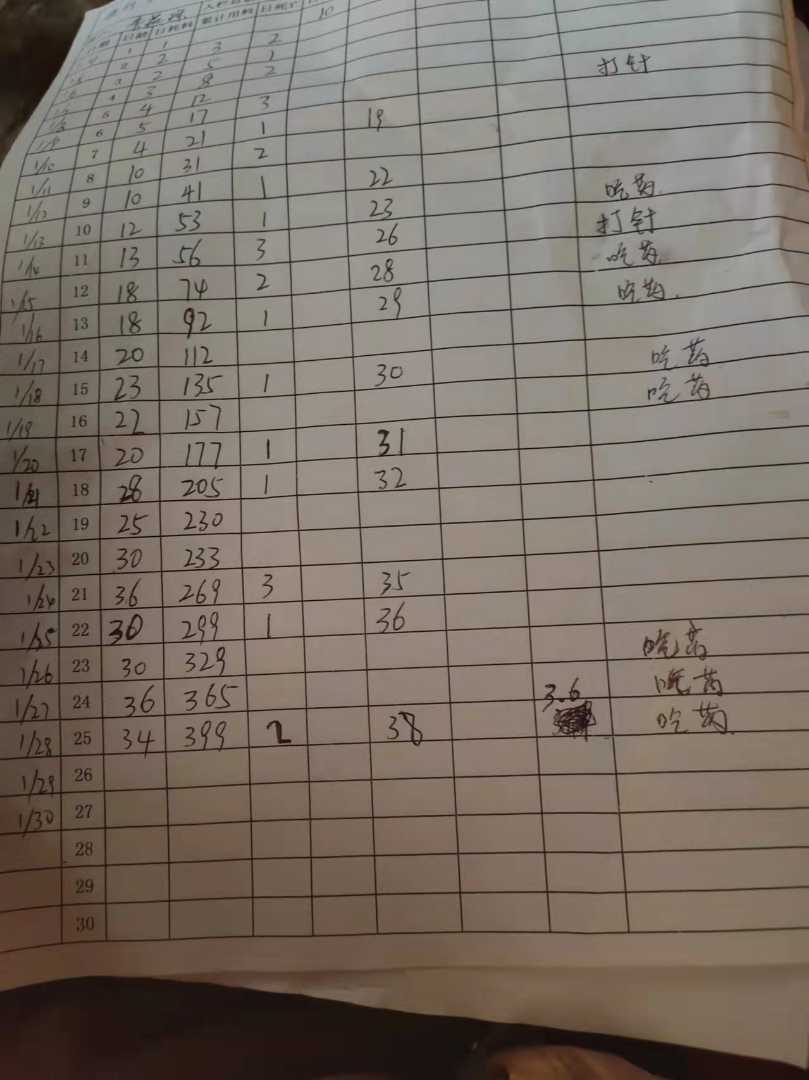 日期 日龄 日耗料 累计用料 日死亡
1 1 3 2 10
2 2 5 1
3 2 8 2 打针
4 3 12
1/8 5 4 17 3 19
1/9 6 5 21 1
1/10 7 4 31 2
1/11 8 10 41 1 22 吃药
1/12 9 10 53 1 23 打针
1/13 10 12 56 3 26 吃药
1/14 11 13 74 2 28 吃药
1/15 12 18 92 1 29
1/16 13 18 112
1/17 14 20 135 1 30 吃药
1/18 15 23 157 吃药
1/19 16 22 177 1 31
1/20 17 20 205 1 32
1/21 18 28 230
1/22 19 25 233
1/23 20 30 269 3 35
1/24 21 36 299 1 36
1/25 22 30 329 吃药
1/26 23 30 365 3.6 吃药
1/27 24 36 399 2 38 吃药
1/28 25 34
1/29 26
1/30 27
28
29
30